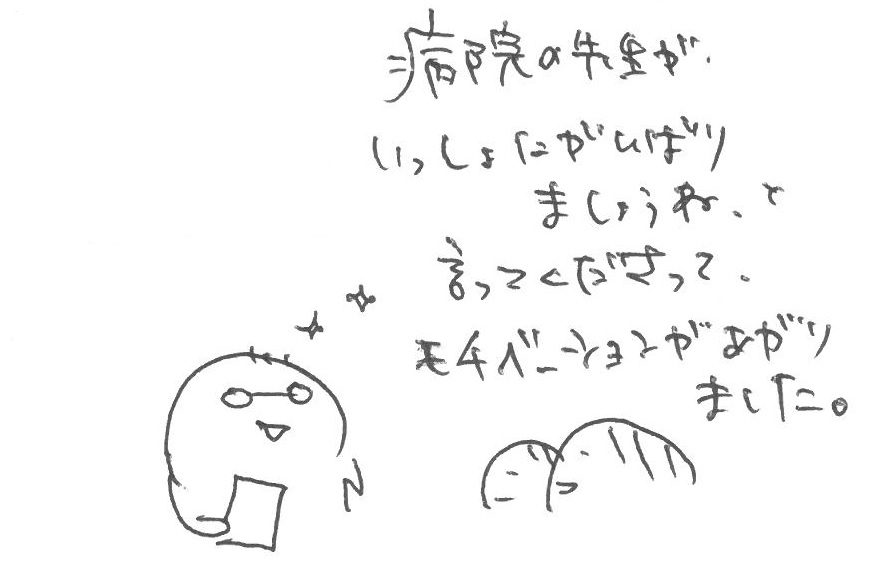 病院の先生が、
いっしょにがんばり
ましょうね、と
言ってくださって、
モチベーションがあがり
ました。